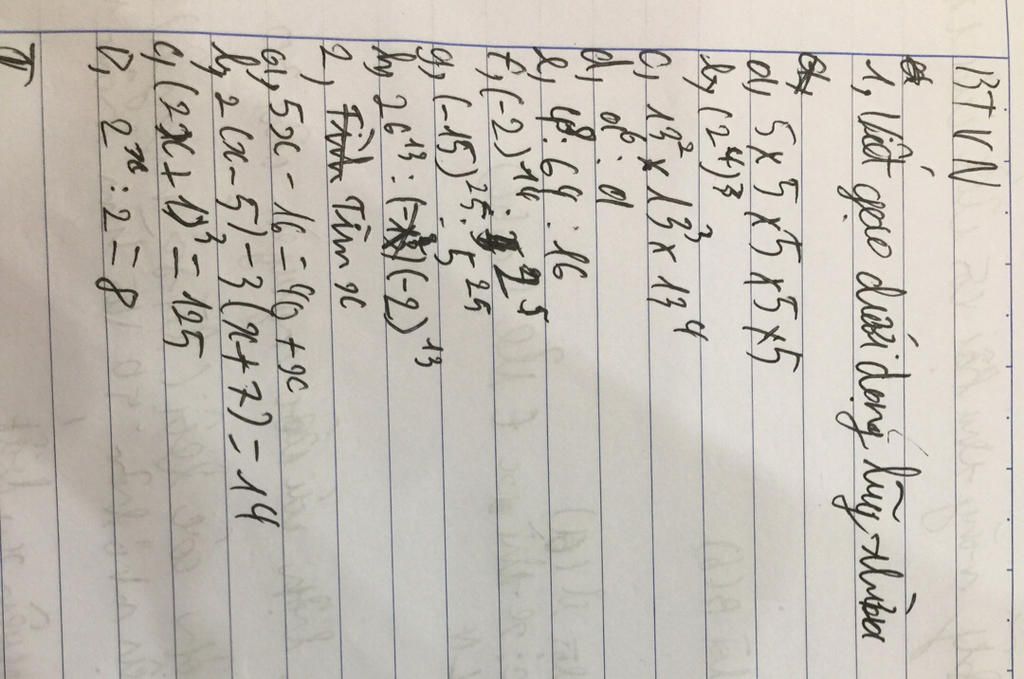 BTVN
1, Viết gọn dưới dạng lũy thừa
a, 5 x 5 x 5 x 5 x 5
b, (2⁴)³
c, 13² x 13³ x 13⁴
d, d⁶ : d
e, 48 : 64 : 16
f, (-2)¹⁴ : 2⁵
g, (-15)²⁵ : 5²⁵
h, 26¹³ : (-2)¹³
2, Tìm x
a, 5x - 16 = 40 + x
b, 2(x - 5) - 3(x + 7) = 14
c, (2x + 1)³ = 125
D, 2ˣ : 2 = 8